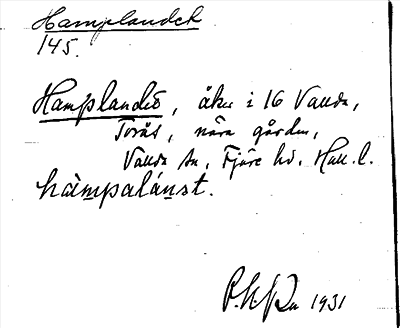 Hamplandet
145.
Hamplandet, åker i 16 Vallda,
Torås, nära gården,
Vallda sn, Fjäre hd. Hall. l.
hàmpalánst.
1931